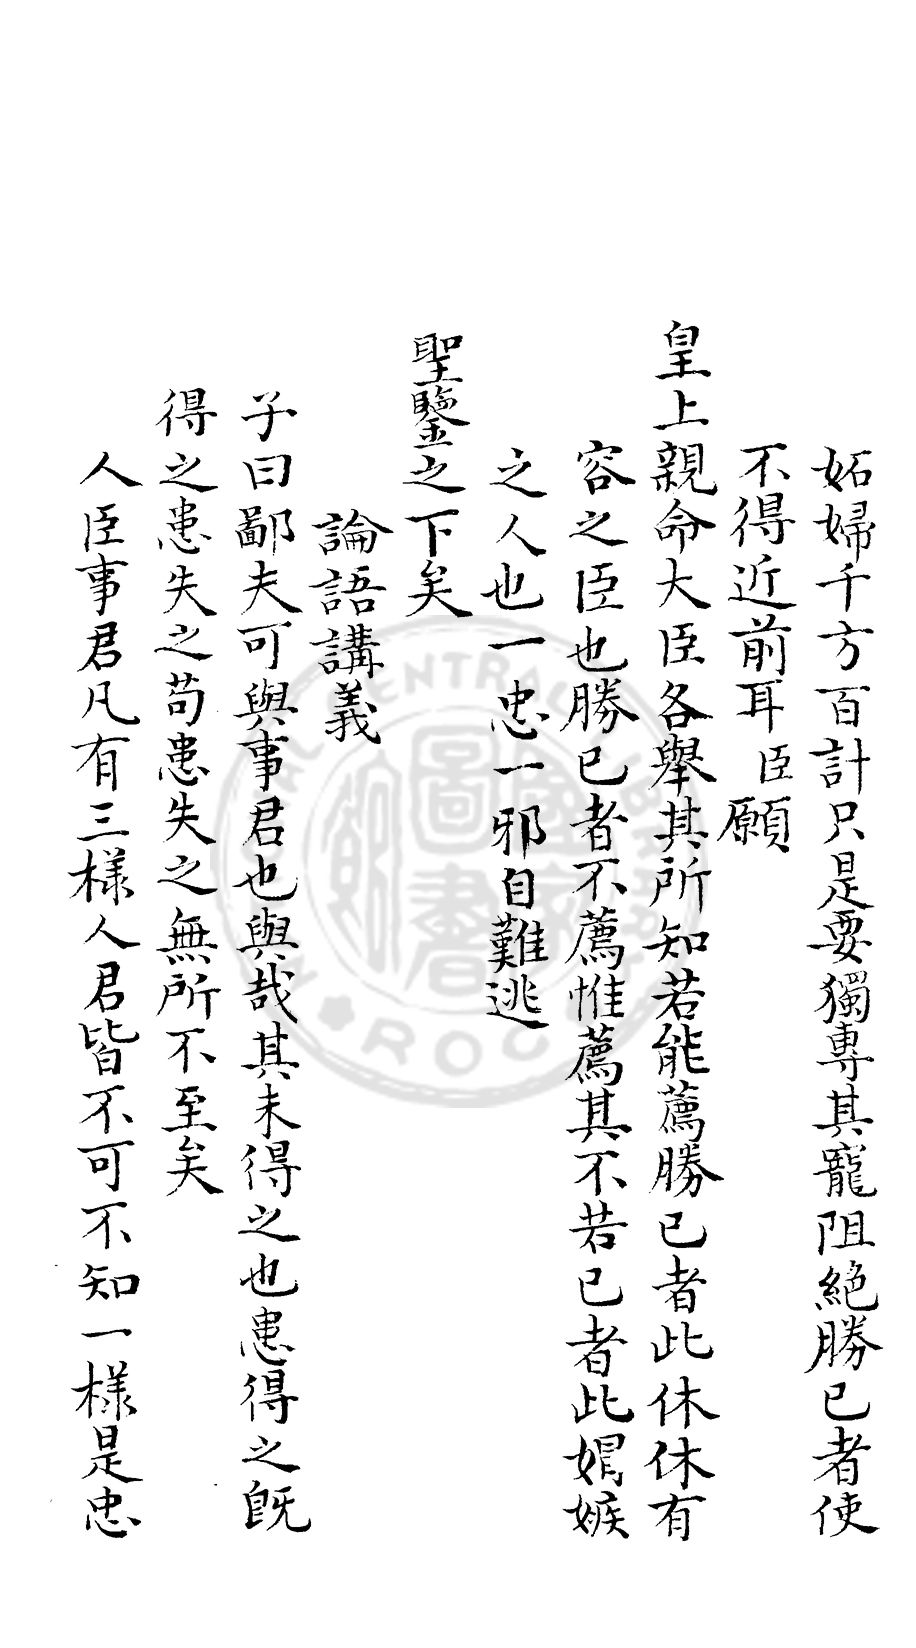 妬婦千方百計只是要獨專其寵阻絶勝已者使
不得近前耳臣願
皇上親命大臣各舉其所知若能薦勝已者此休休有
容之臣也勝已者不薦惟薦其不若已者此媢嫉
之人也一忠一邪自難逃
聖鑒之下矣
論語講義
子曰鄙夫可與事君也與哉其未得之也患得之既
得之患失之苟患失之無所不至矣
人臣事君凡有三樣人君皆不可不知一樣是忠